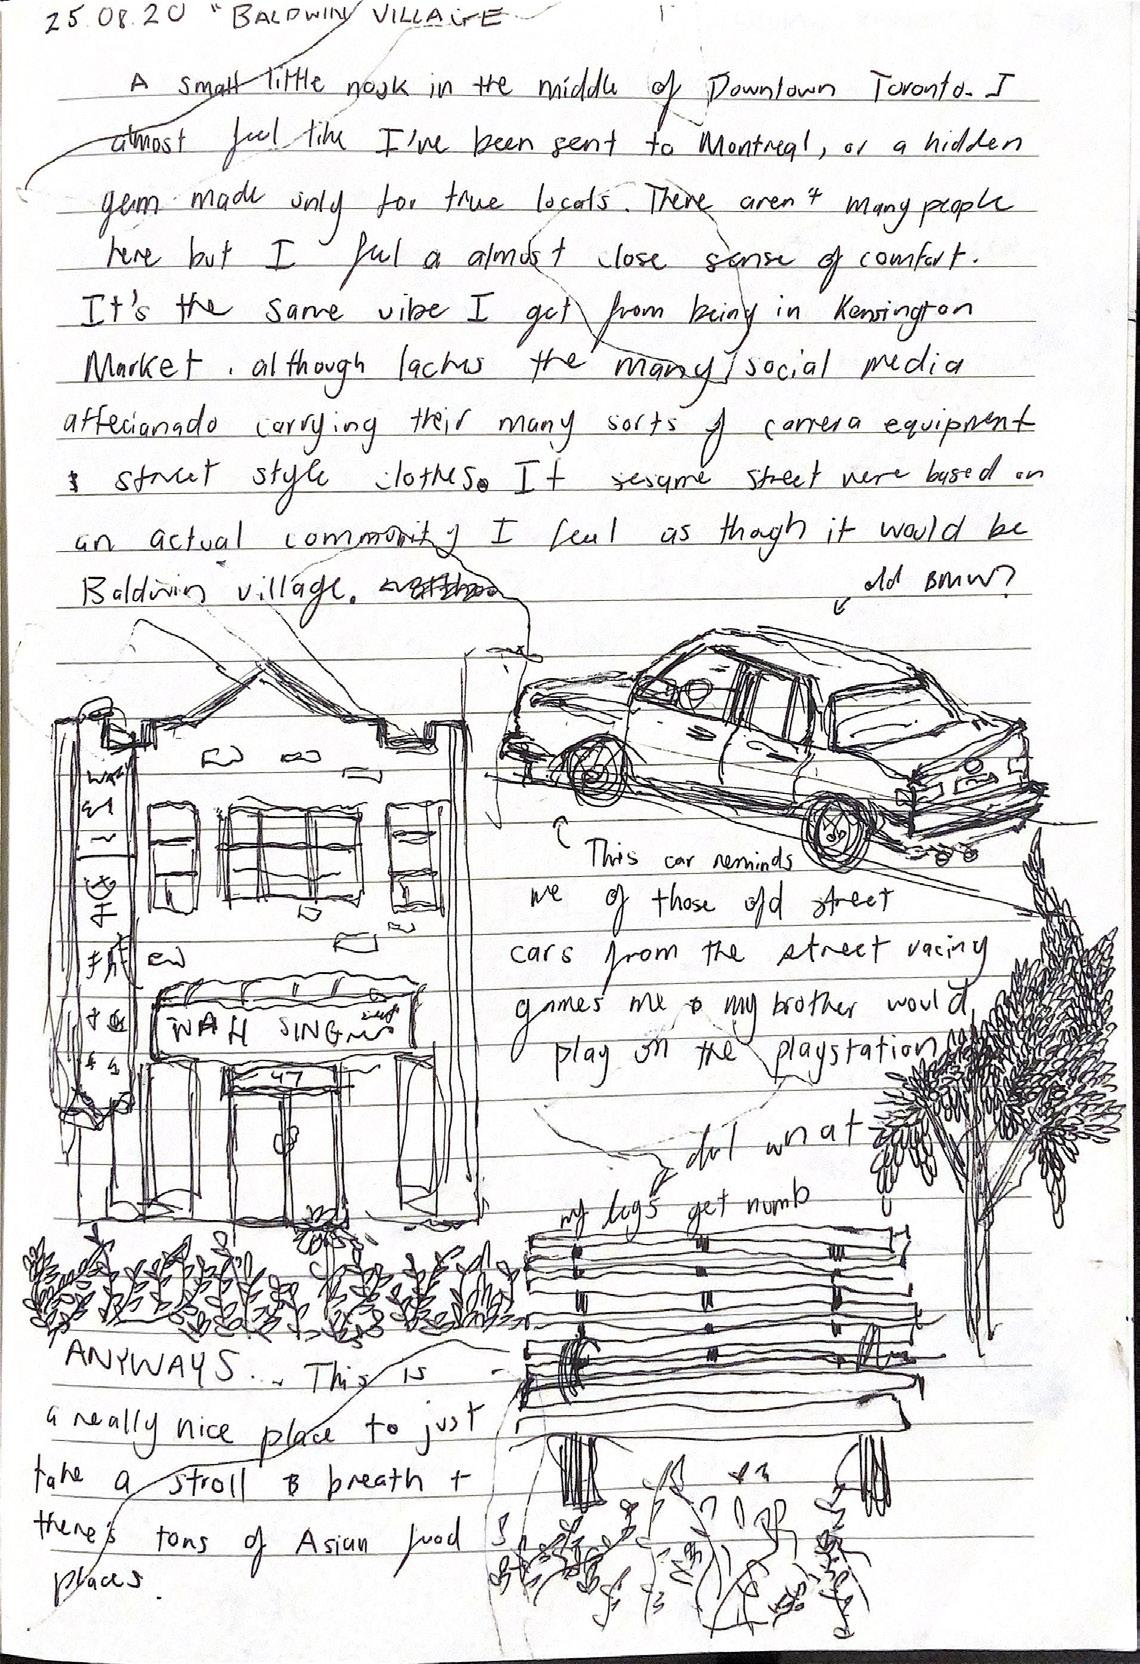 25.08.20 "BALDWIN VILLAGE
A small little nook in the middle of Downtown Toronto. I
almost feel like I've been sent to Montreal, or a hidden
gem made only for true locals. There aren't many people
here but I feel a almost close sense of comfort.
It's the same vibe I get from being in Kensington
Market. although lacks the many social media
affecianado carrying their many sorts of camera equipment
& street style clothes. If sesame street were based on
an actual community I feel as though it would be
Baldwin village.
old BMW?
This car reminds
me of those old street
cars from the street racing
games me & my brother would
play on the playstation
WAH SING
47
dul what
my legs get numb
ANYWAYS... This is
a really nice place to just
take a stroll & breath +
there's tons of Asian food
places.